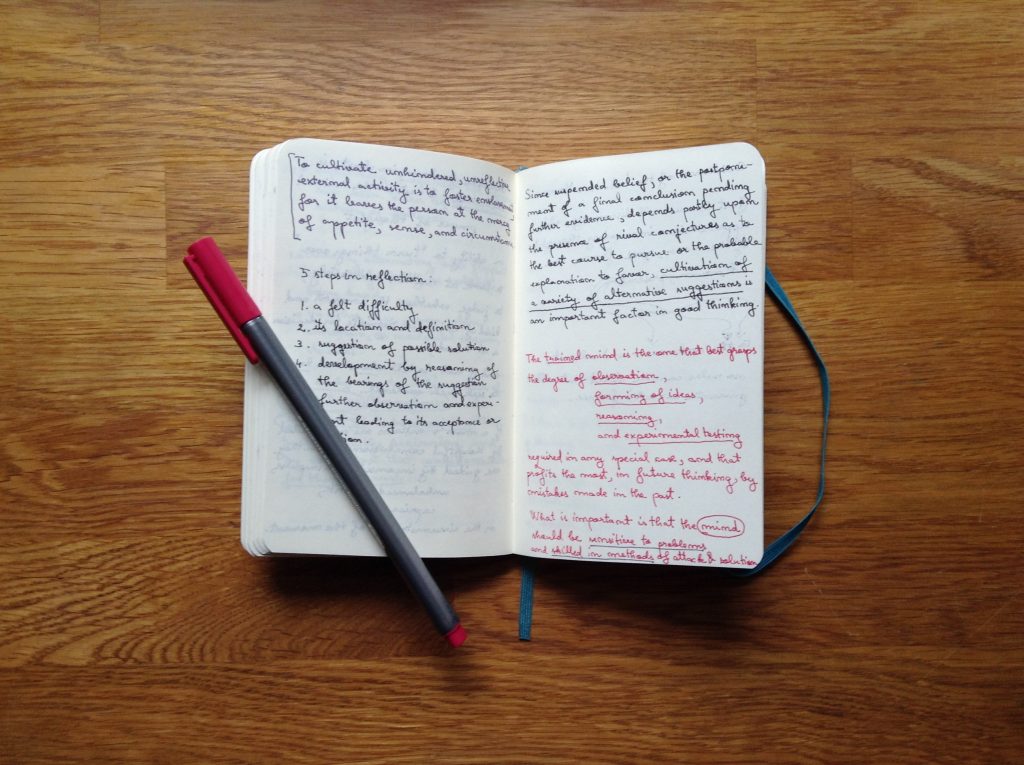 To cultivate unhindered, unreflective
external activity is to foster enslavement
for it leaves the person at the mercy
of appetite, sense, and circumstance
5 steps in reflection:
1. a felt difficulty
2. its location and definition
3. suggestion of possible solution
4. development by reasoning of
the bearings of the suggestion
further observation and experi-
leading to its acceptance or
Since suspended belief, or the postpone-
ment of a final conclusion pending
further evidence, depends partly upon
the presence of rival conjectures as to
the best course to pursue or the probable
explanation to favor, cultivation of
a variety of alternative suggestions is
an important factor in good thinking.
The trained mind is the one that best grasps
the degree of observation,
forming of ideas,
reasoning,
and experimental testing
required in any special case, and that
profits the most, in future thinking, by
mistakes made in the past.
What is important is that the mind
should be sensitive to problems
and skilled in methods of attack & solution